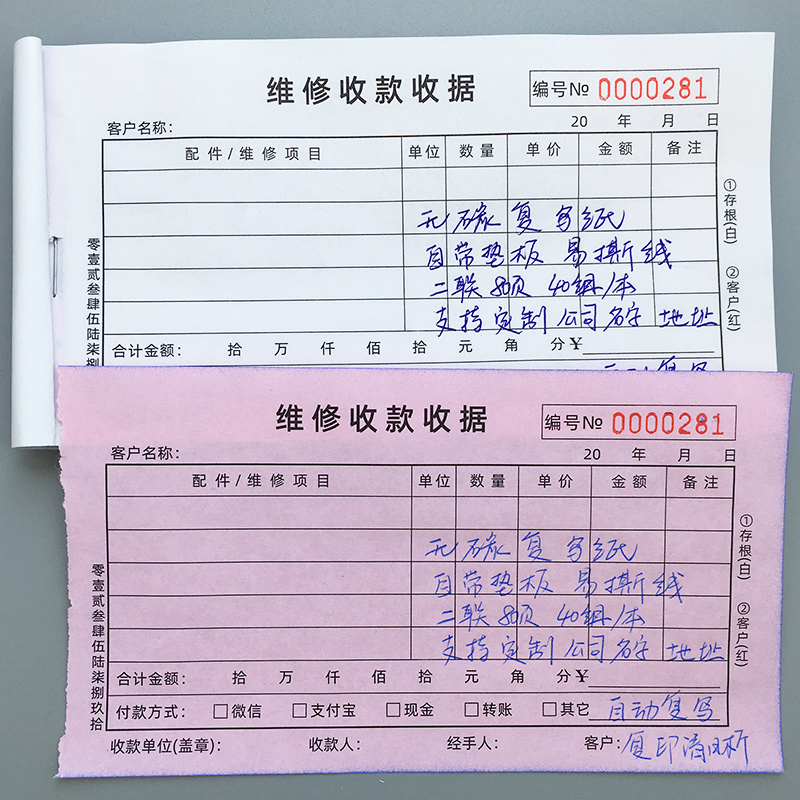 维修收款收据
编号№ 0000281
客户名称：
20 年 月 日
配件/维修项目 单位 数量 单价 金额 备注
无碳复写纸
自带垫板 易撕线
二联80页 40组/本
支持定制公司名字 地址
合计金额： 拾 万 仟 佰 拾 元 角 分¥
自动复写
零壹贰叁肆伍陆柒捌
①存根(白) ②客户(红)
维修收款收据
编号№ 0000281
客户名称：
20 年 月 日
配件/维修项目 单位 数量 单价 金额 备注
无碳复写纸
自带垫板 易撕线
二联80页 40组/本
支持定制公司名字 地址
合计金额： 拾 万 仟 佰 拾 元 角 分¥
付款方式： □微信 □支付宝 □现金 □转账 □其它 自动复写
收款单位(盖章)： 收款人： 经手人： 客户：复印清晰
零壹贰叁肆伍陆柒捌玖拾
①存根(白) ②客户(红)